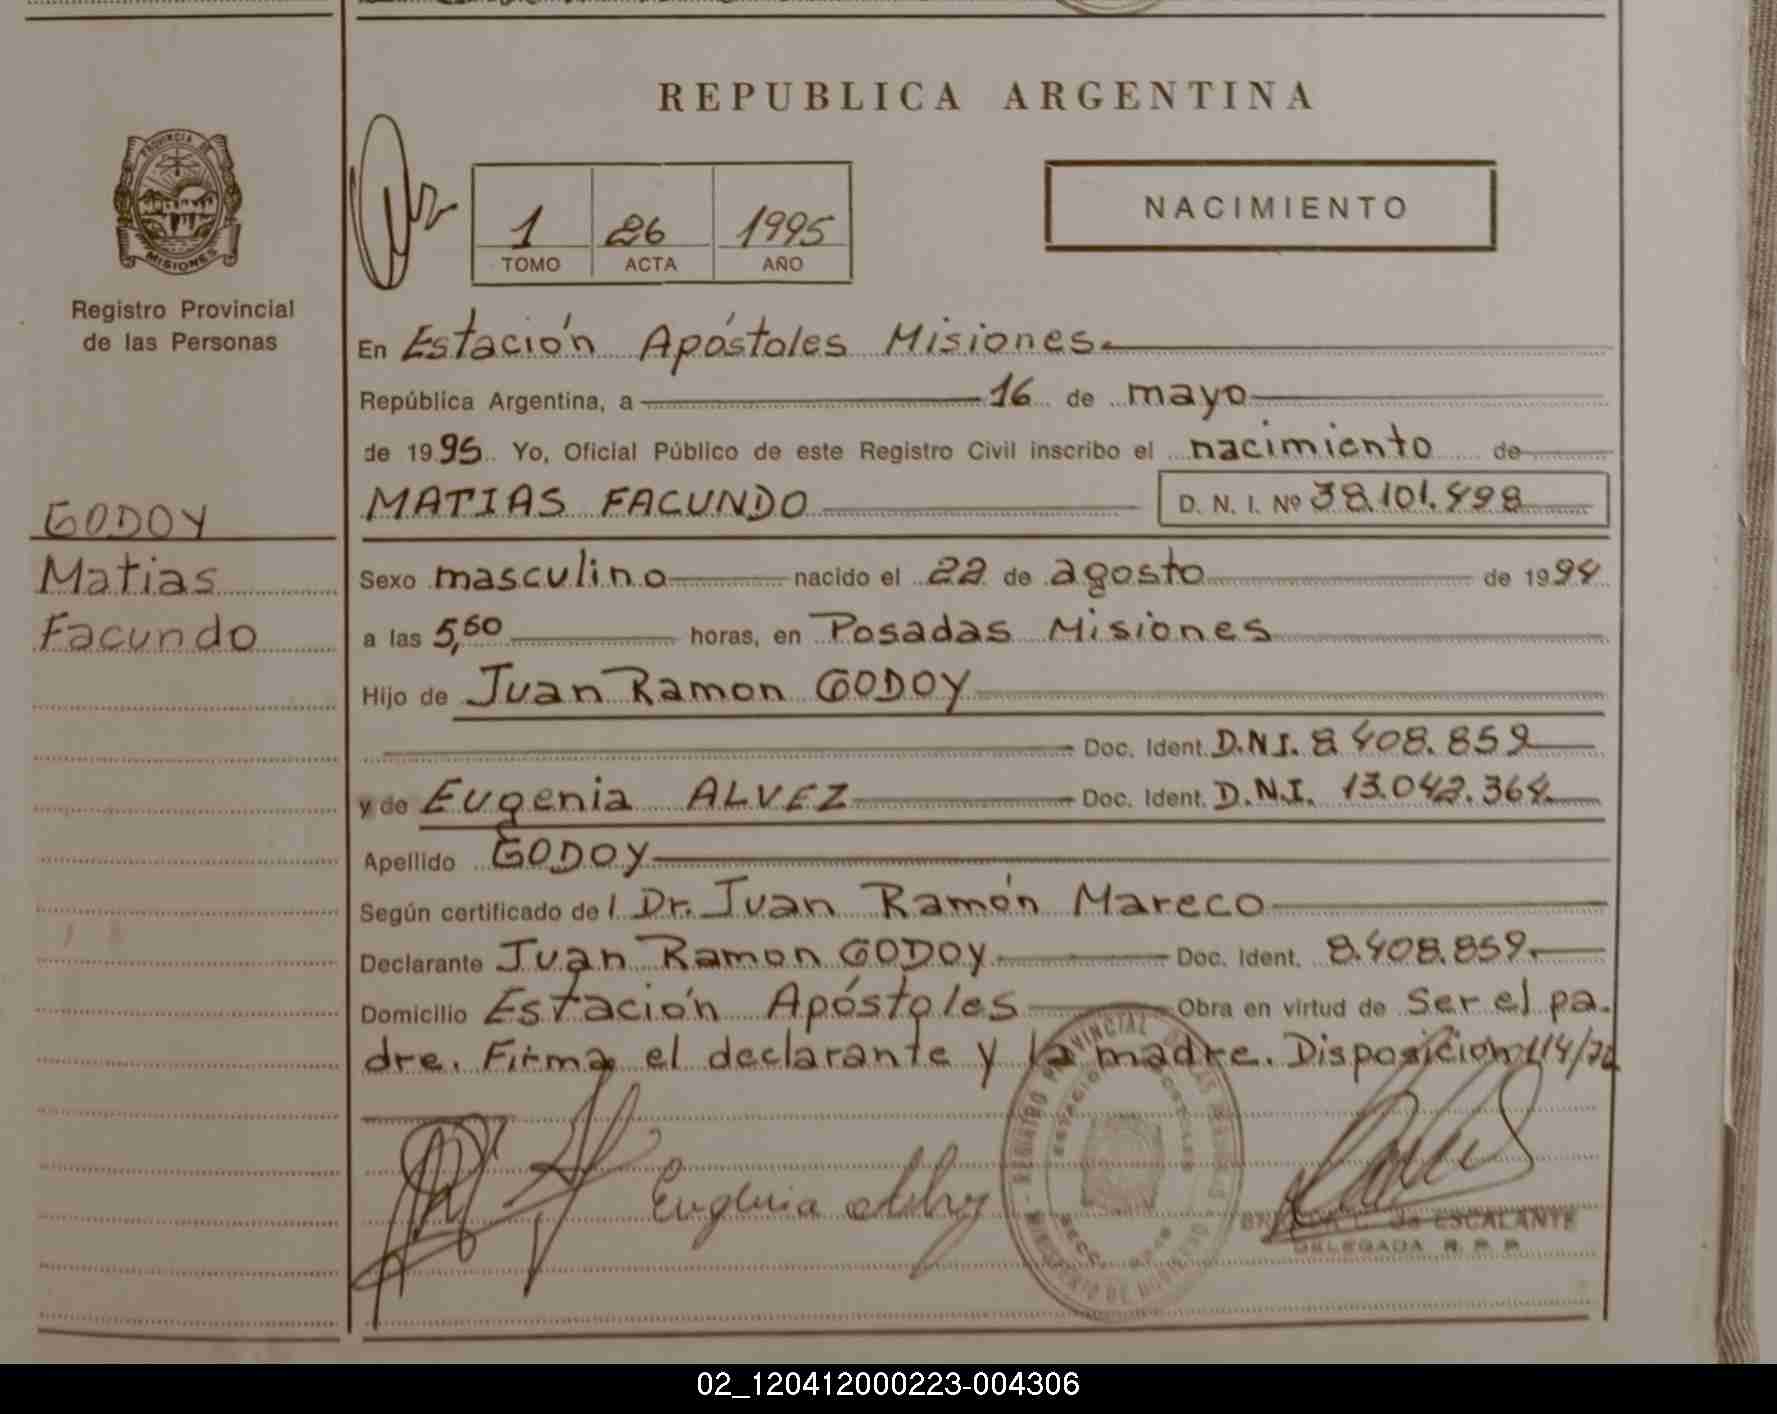 REPUBLICA ARGENTINA
PROVINCIA DE
MISIONES
Registro Provincial
de las Personas
1 26 1995
TOMO ACTA AÑO
NACIMIENTO
En Estación Apóstoles Misiones.
República Argentina, a 16 de mayo
de 1995. Yo, Oficial Público de este Registro Civil inscribo el nacimiento de
MATIAS FACUNDO D. N. I. Nº 38.101.498
GODOY
Matias
Facundo
Sexo masculino nacido el 22 de agosto de 1994
a las 5,50 horas, en Posadas Misiones
Hijo de Juan Ramon GODOY
Doc. Ident. D.N.I. 8.408.859
y de Eugenia ALVEZ Doc. Ident. D.N.I. 13.042.364
Apellido GODOY
Según certificado del Dr. Juan Ramón Mareco
Declarante Juan Ramon GODOY Doc. Ident. 8.408.859.
Domicilio Estación Apóstoles Obra en virtud de Ser el pa.
dre. Firma el declarante y la madre. Disposición 114/72
REGISTRO PROVINCIAL DE LAS PERSONAS
ESTACION APOSTOLES
MINISTERIO DE GOBIERNO
Eugenia
de ESCALANTE
DELEGADA R. P. P.
02_120412000223-004306